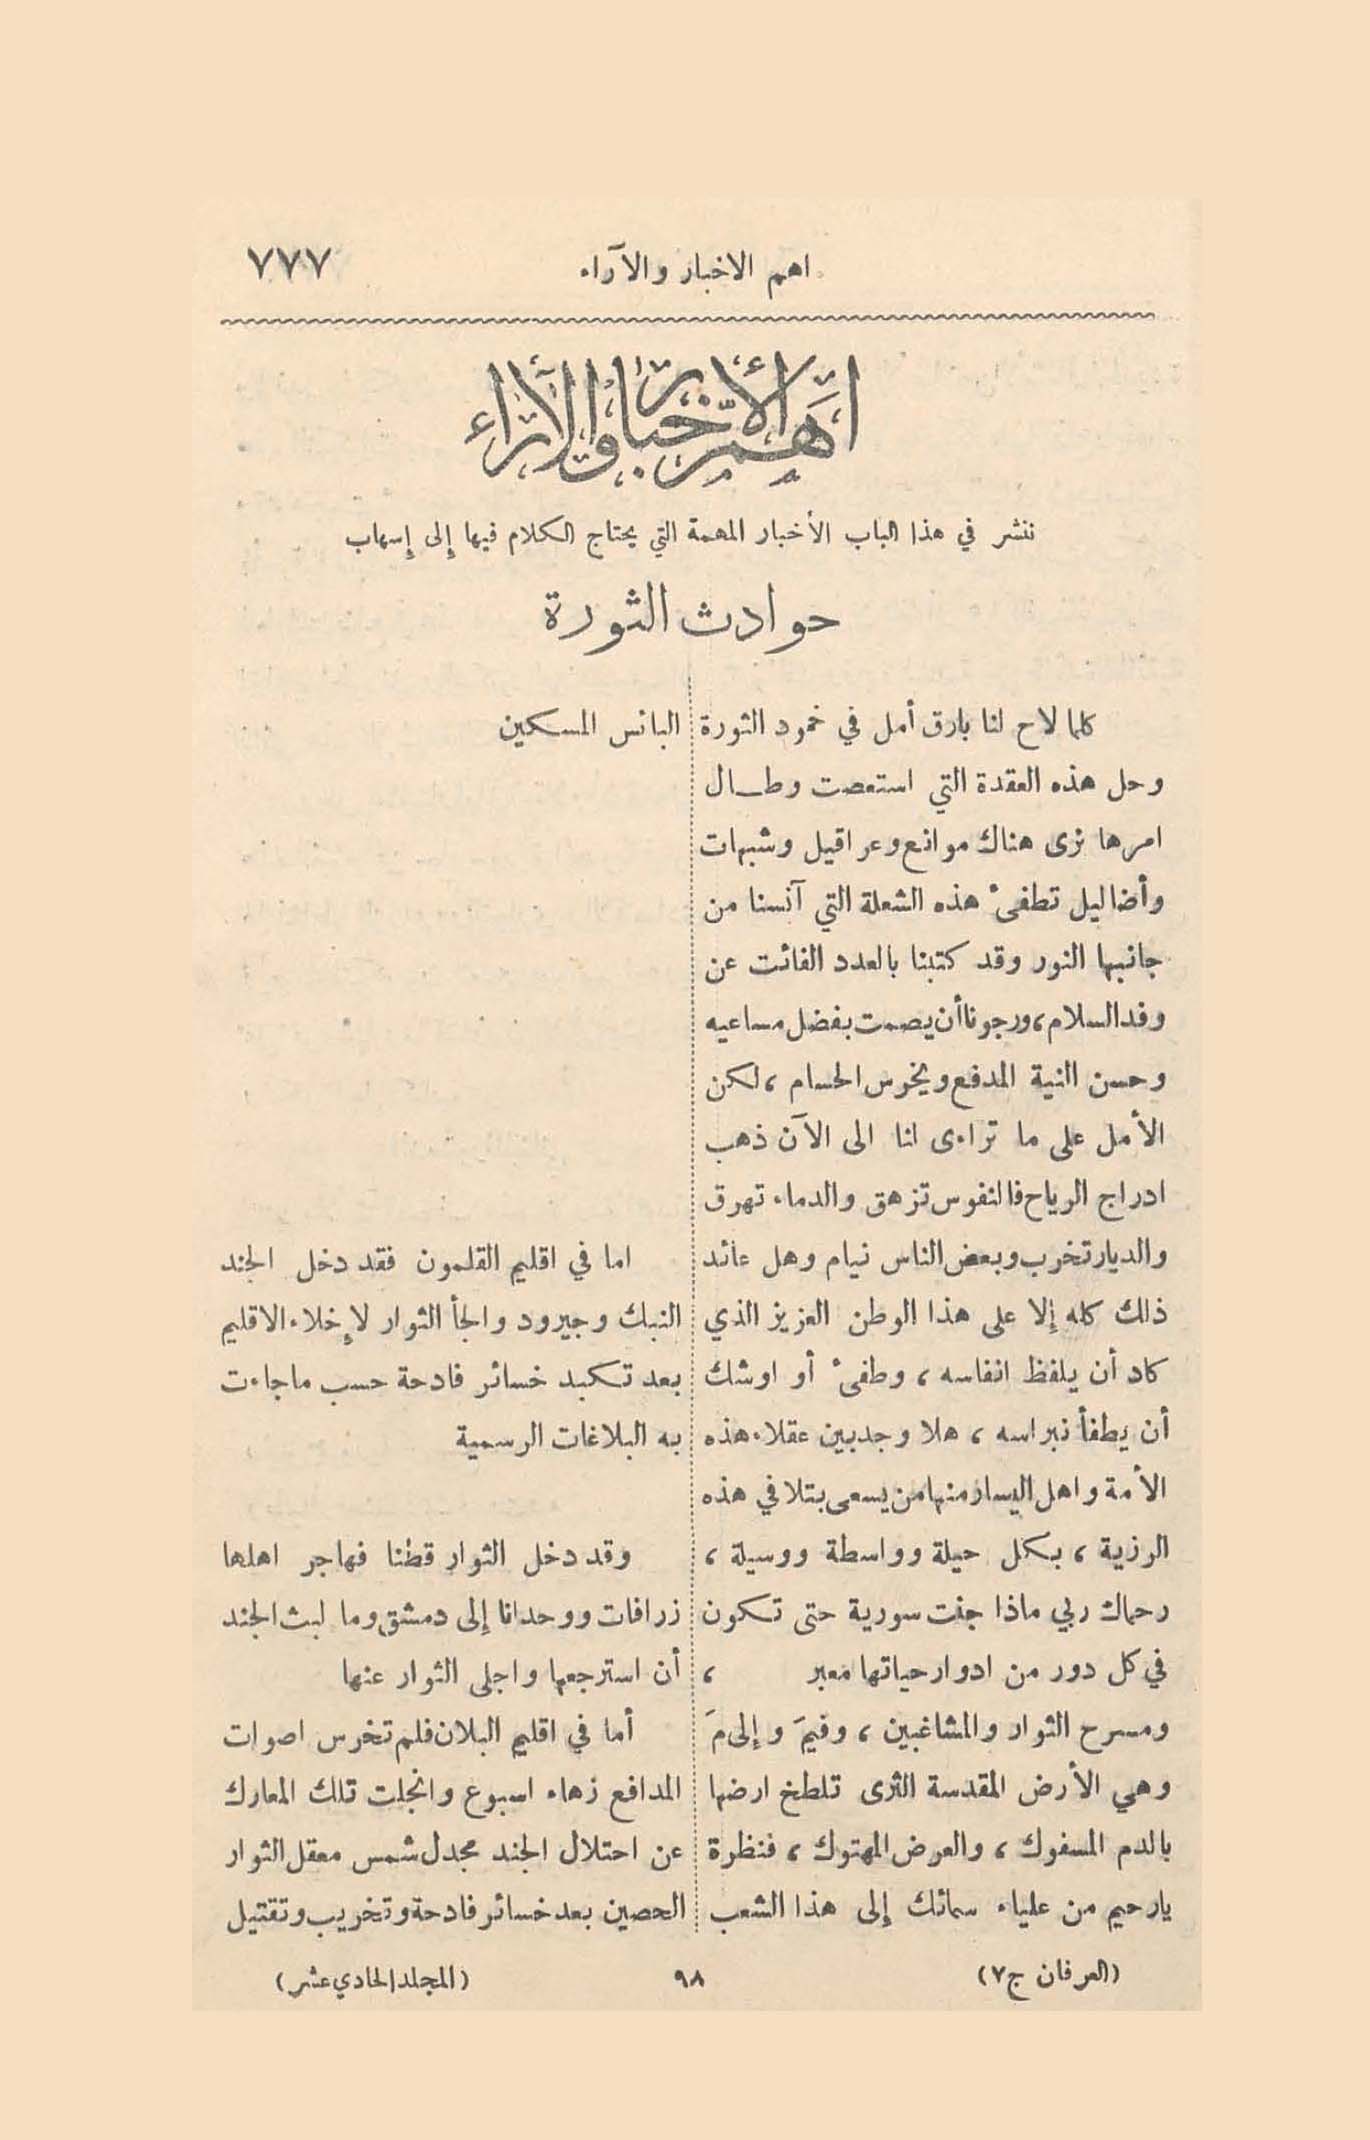 اهم الاخبار والآراء
٧٧٧
أهم الأخبار والآراء
ننشر في هذا الباب الأخبار المهمة التي يحتاج الكلام فيها إلى إسهاب
حوادث الثورة
كلما لاح لنا بارق أمل في خمود الثورة
وحل هذه العقدة التي استعصت وطـال
امرها نرى هناك موانع وعراقيل وشبهات
وأضاليل تطفئ هذه الشعلة التي آنسنا من
جانبها النور وقد كتبنا بالعدد الفائت عن
وفد السلام، ورجونا أن يصمت بفضل مساعيه
وحسن النية المدفع ويخرس الحسام، لكن
الأمل على ما تراءى لنا الى الآن ذهب
ادراج الرياح فالنفوس تزهق والدماء تهرق
والديار تخرب وبعض الناس نيام وهل عائد
ذلك كله إلا على هذا الوطن العزيز الذي
كاد أن يلفظ انفاسه، وطفئ أو اوشك
أن يطفأ نبراسه، هلا وجد بين عقلاء هذه
الأمة واهل اليسار منها من يسعى بتلافي هذه
الرزية، بكل حيلة وواسطة ووسيلة،
رحماك ربي ماذا جنت سورية حتى تكون
في كل دور من ادوار حياتها معبر ،
ومسرح الثوار والمشاغبين، وفيمَ وإلى مَ
وهي الأرض المقدسة الثرى تلطخ ارضها
بالدم المسفوك، والعرض المهتوك، فنظرة
يارحيم من علياء سمائك إلى هذا الشعب
البائس المسكين
اما في اقليم القلمون فقد دخل الجند
النبك وجيرود والجأ الثوار لإخلاء الاقليم
بعد تكبد خسائر فادحة حسب ماجاءت
به البلاغات الرسمية
وقد دخل الثوار قطنا فهاجر اهلها
زرافات ووحدانا إلى دمشق وما لبث الجند
أن استرجعها واجلى الثوار عنها
أما في اقليم البلان فلم تخرس اصوات
المدافع زهاء اسبوع وانجلت تلك المعارك
عن احتلال الجند مجدل شمس معقل الثوار
الحصين بعد خسائر فادحة وتخريب وتقتيل
(العرفان ج٧)
٩٨
(المجلد الحادي عشر)